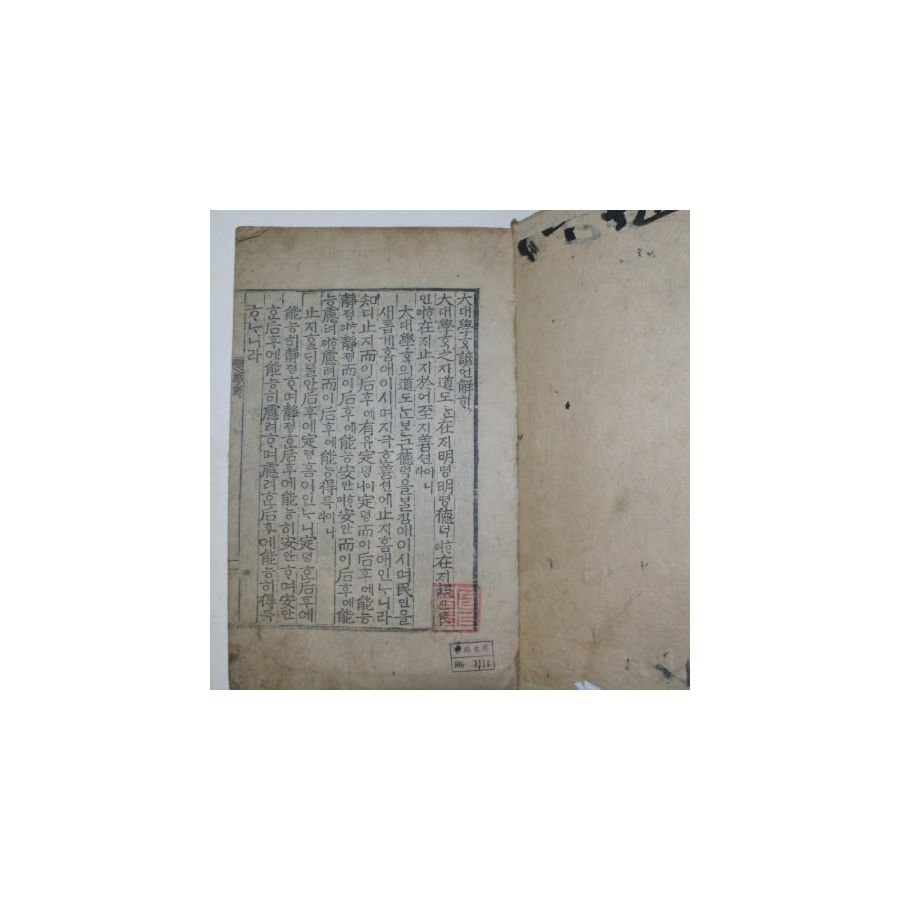 大대學ᄒᆞᆨ諺언解ᄒᆡ
大대學ᄒᆞᆨ之지道도ᄂᆞᆫ在ᄌᆡ明명明명德덕ᄒᆞ며在ᄌᆡ親신民
민ᄒᆞ며在ᄌᆡ止지於어至지善션이니라
大대學ᄒᆞᆨ의道도ᄂᆞᆫᄇᆞᆯ근德덕을ᄇᆞᆯ킴애이시며民민을
새롭게홈애이시며지극ᄒᆞᆫ善션에止지홈애인ᄂᆞ니라
知디止지而이后후에有유定뎡이니定뎡而이后후에能능
靜졍ᄒᆞ며靜졍而이后후에能능安안ᄒᆞ며安안而이后후에能
능慮려ᄒᆞ며慮려而이后후에能능得득이니라
止지홀ᄃᆡᄅᆞᆯ안后후에定뎡홈이인ᄂᆞ니定뎡ᄒᆞᆫ后후에
能능히靜졍ᄒᆞ며靜졍ᄒᆞᆫ后후에能능히安안ᄒᆞ며安안
ᄒᆞᆫ后후에能능히慮려ᄒᆞ며慮려ᄒᆞᆫ后후에能능히得득
ᄒᆞᄂᆞ니라
No. 3114